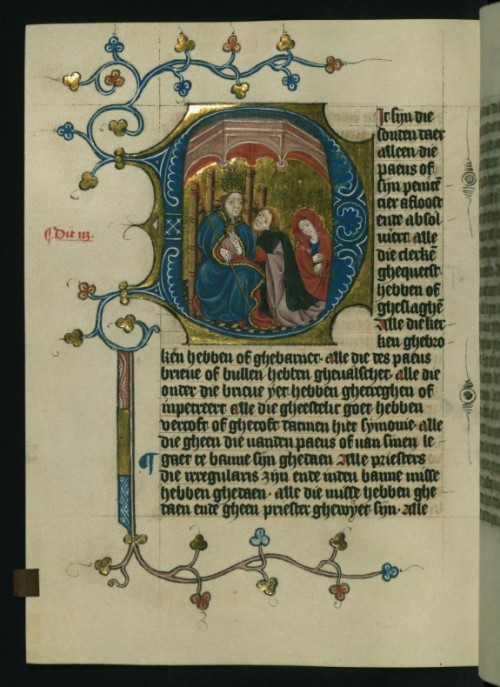 Dit sijn die
sonden daer
alleen die
paeus of
sijn penitē
cier af loost
ende absol
uiert. alle
die clerkē
ghequetst
hebben of
gheslaghē
Alle die ker
ken ghebro
ken hebben of ghebarnet. alle die des paeus
brieue of bullen hebben gheualschet. alle die
onder die brieue yet hebben ghecreghen of
inpetreert alle die gheestelic goet hebben
vercoft of ghecoft datmen hiet symonie. alle
die gheen die vanden paeus of van sinen le
gaet te banne sijn ghedaen. Alle priesters
¶ die irregularis zijn ende inden banne misse
hebben ghedaen. alle die misse hebben ghe
daen ende gheen priester ghewyet sijn. Alle